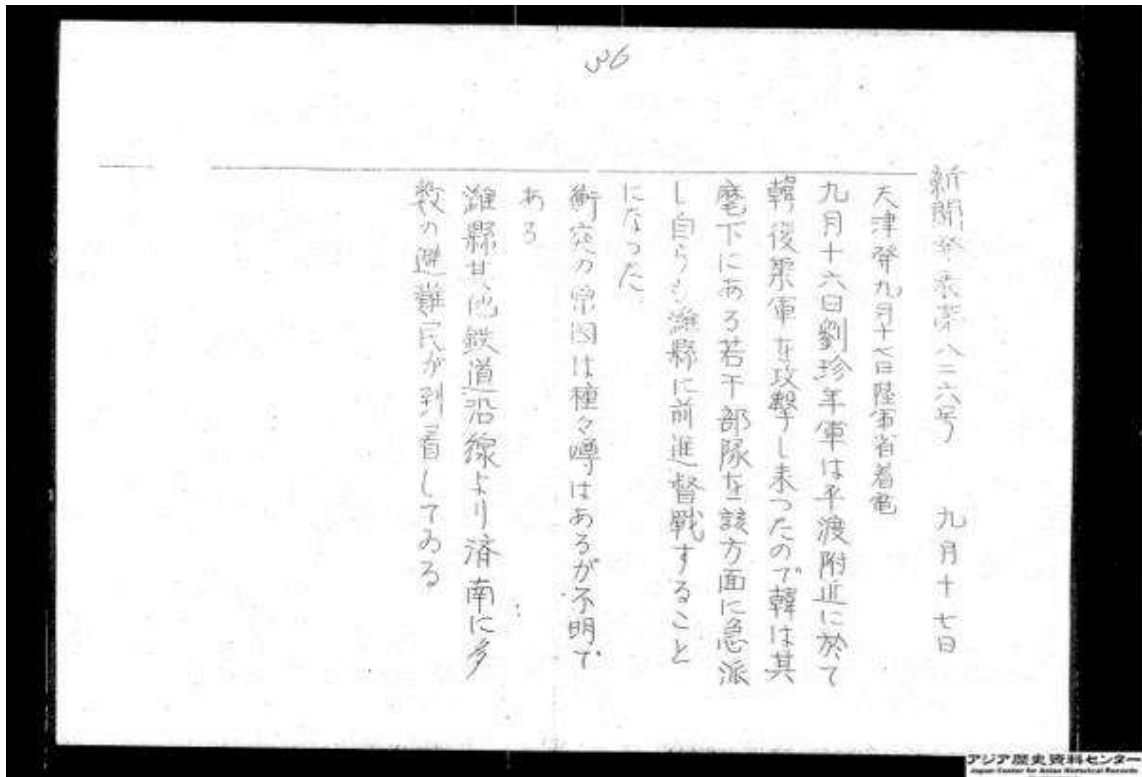 36
新聞発表第八二六号 九月十七日
天津発九月十七日陸軍省着電
九月十六日劉珍年軍は平渡附近に於て
韓復榘軍を攻撃し来つたので韓は其
麾下にある若干部隊を該方面に急派
し自らも濰縣に前進督戰すること
になつた
衝突の原因は種々噂はあるが不明で
ある
濰縣其他鉄道沿線より済南に多
数の避難民が到着してゐる
アジア歴史資料センター
Japan Center for Asian Historical Records